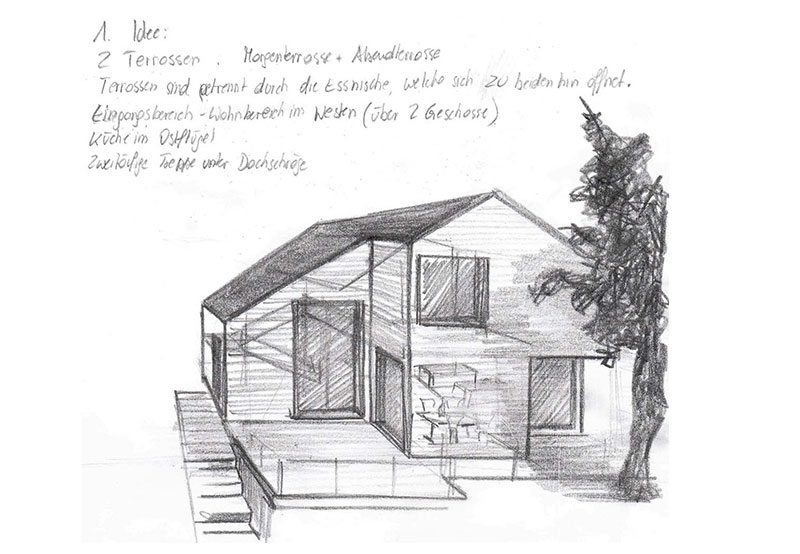 1. Idee:
2 Terrassen. Morgenterrasse + Abendterrasse
Terrassen sind getrennt durch die Essnische, welche sich zu beiden hin öffnet.
Eingangsbereich - Wohnbereich im Westen (über 2 Geschosse)
Küche im Ostflügel
Zweiläufige Treppe unter Dachschräge